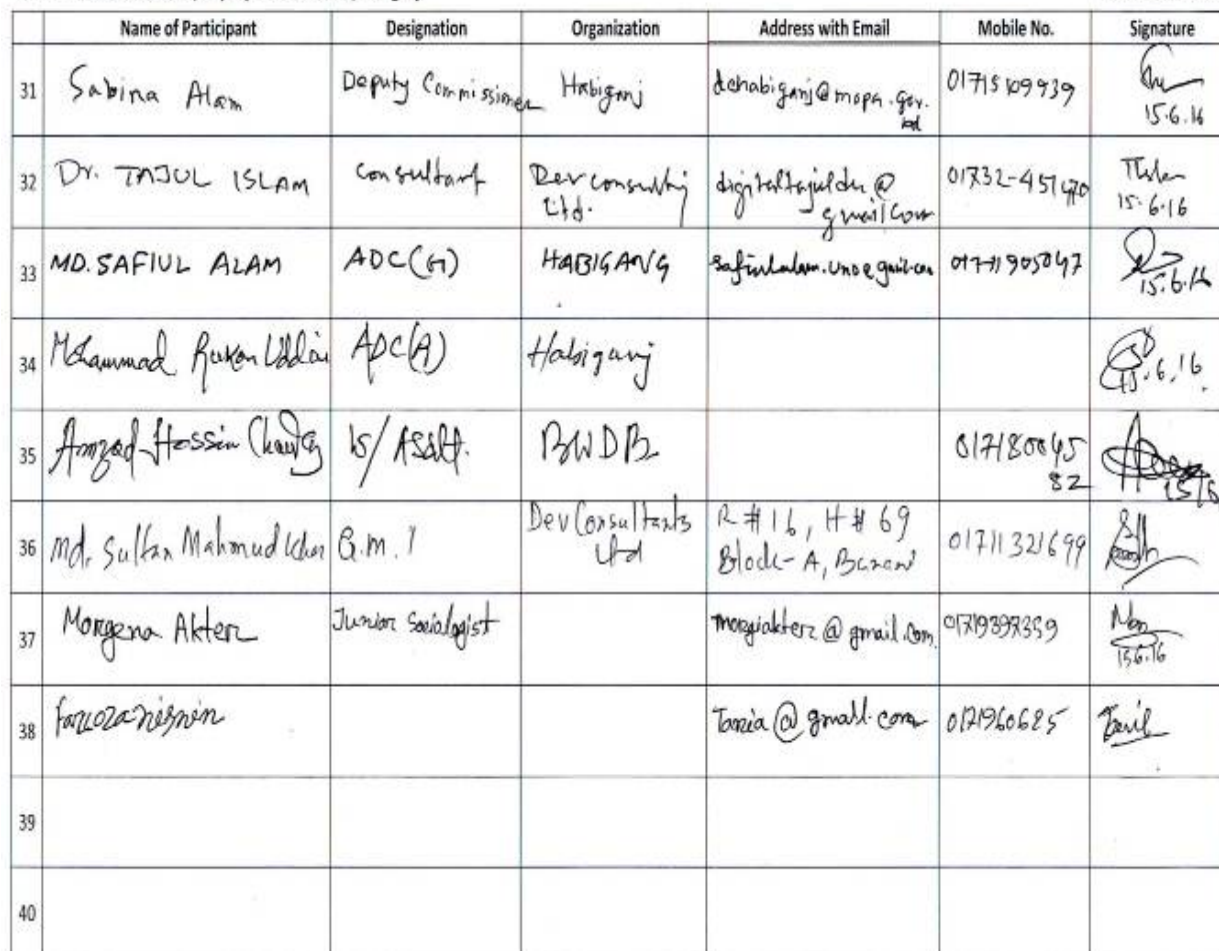 Name of Participant Designation Organization Address with Email Mobile No. Signature
31 Sabina Alam Deputy Commissioner Habiganj dchabiganj@mopa.gov.bd 01715109939
15.6.16
32 Dr. TAJUL ISLAM Consultant Dev consulting Ltd. digitaltajuldu@gmail.com 01732-457470
15.6.16
33 MD. SAFIUL ALAM ADC(G) HABIGANG safiulalam.uno@gmail.com 01711905047
15.6.16
34 Mohammad Rukon Uddin ADC(A) Habiganj
15.6.16
35 Amzad Hossin W/Asstt. BWDB 017180045
82
36 Md. Sultan Mahmud Khan G.M. Dev Consultants R#16, H#69 01711321699
Ltd Block-A, Banani
37 Morgena Akter Junior Sociologist morgiakter@gmail.com 01719397359
15.6.16
38 Tania@gmail.com 0171960685
39
40